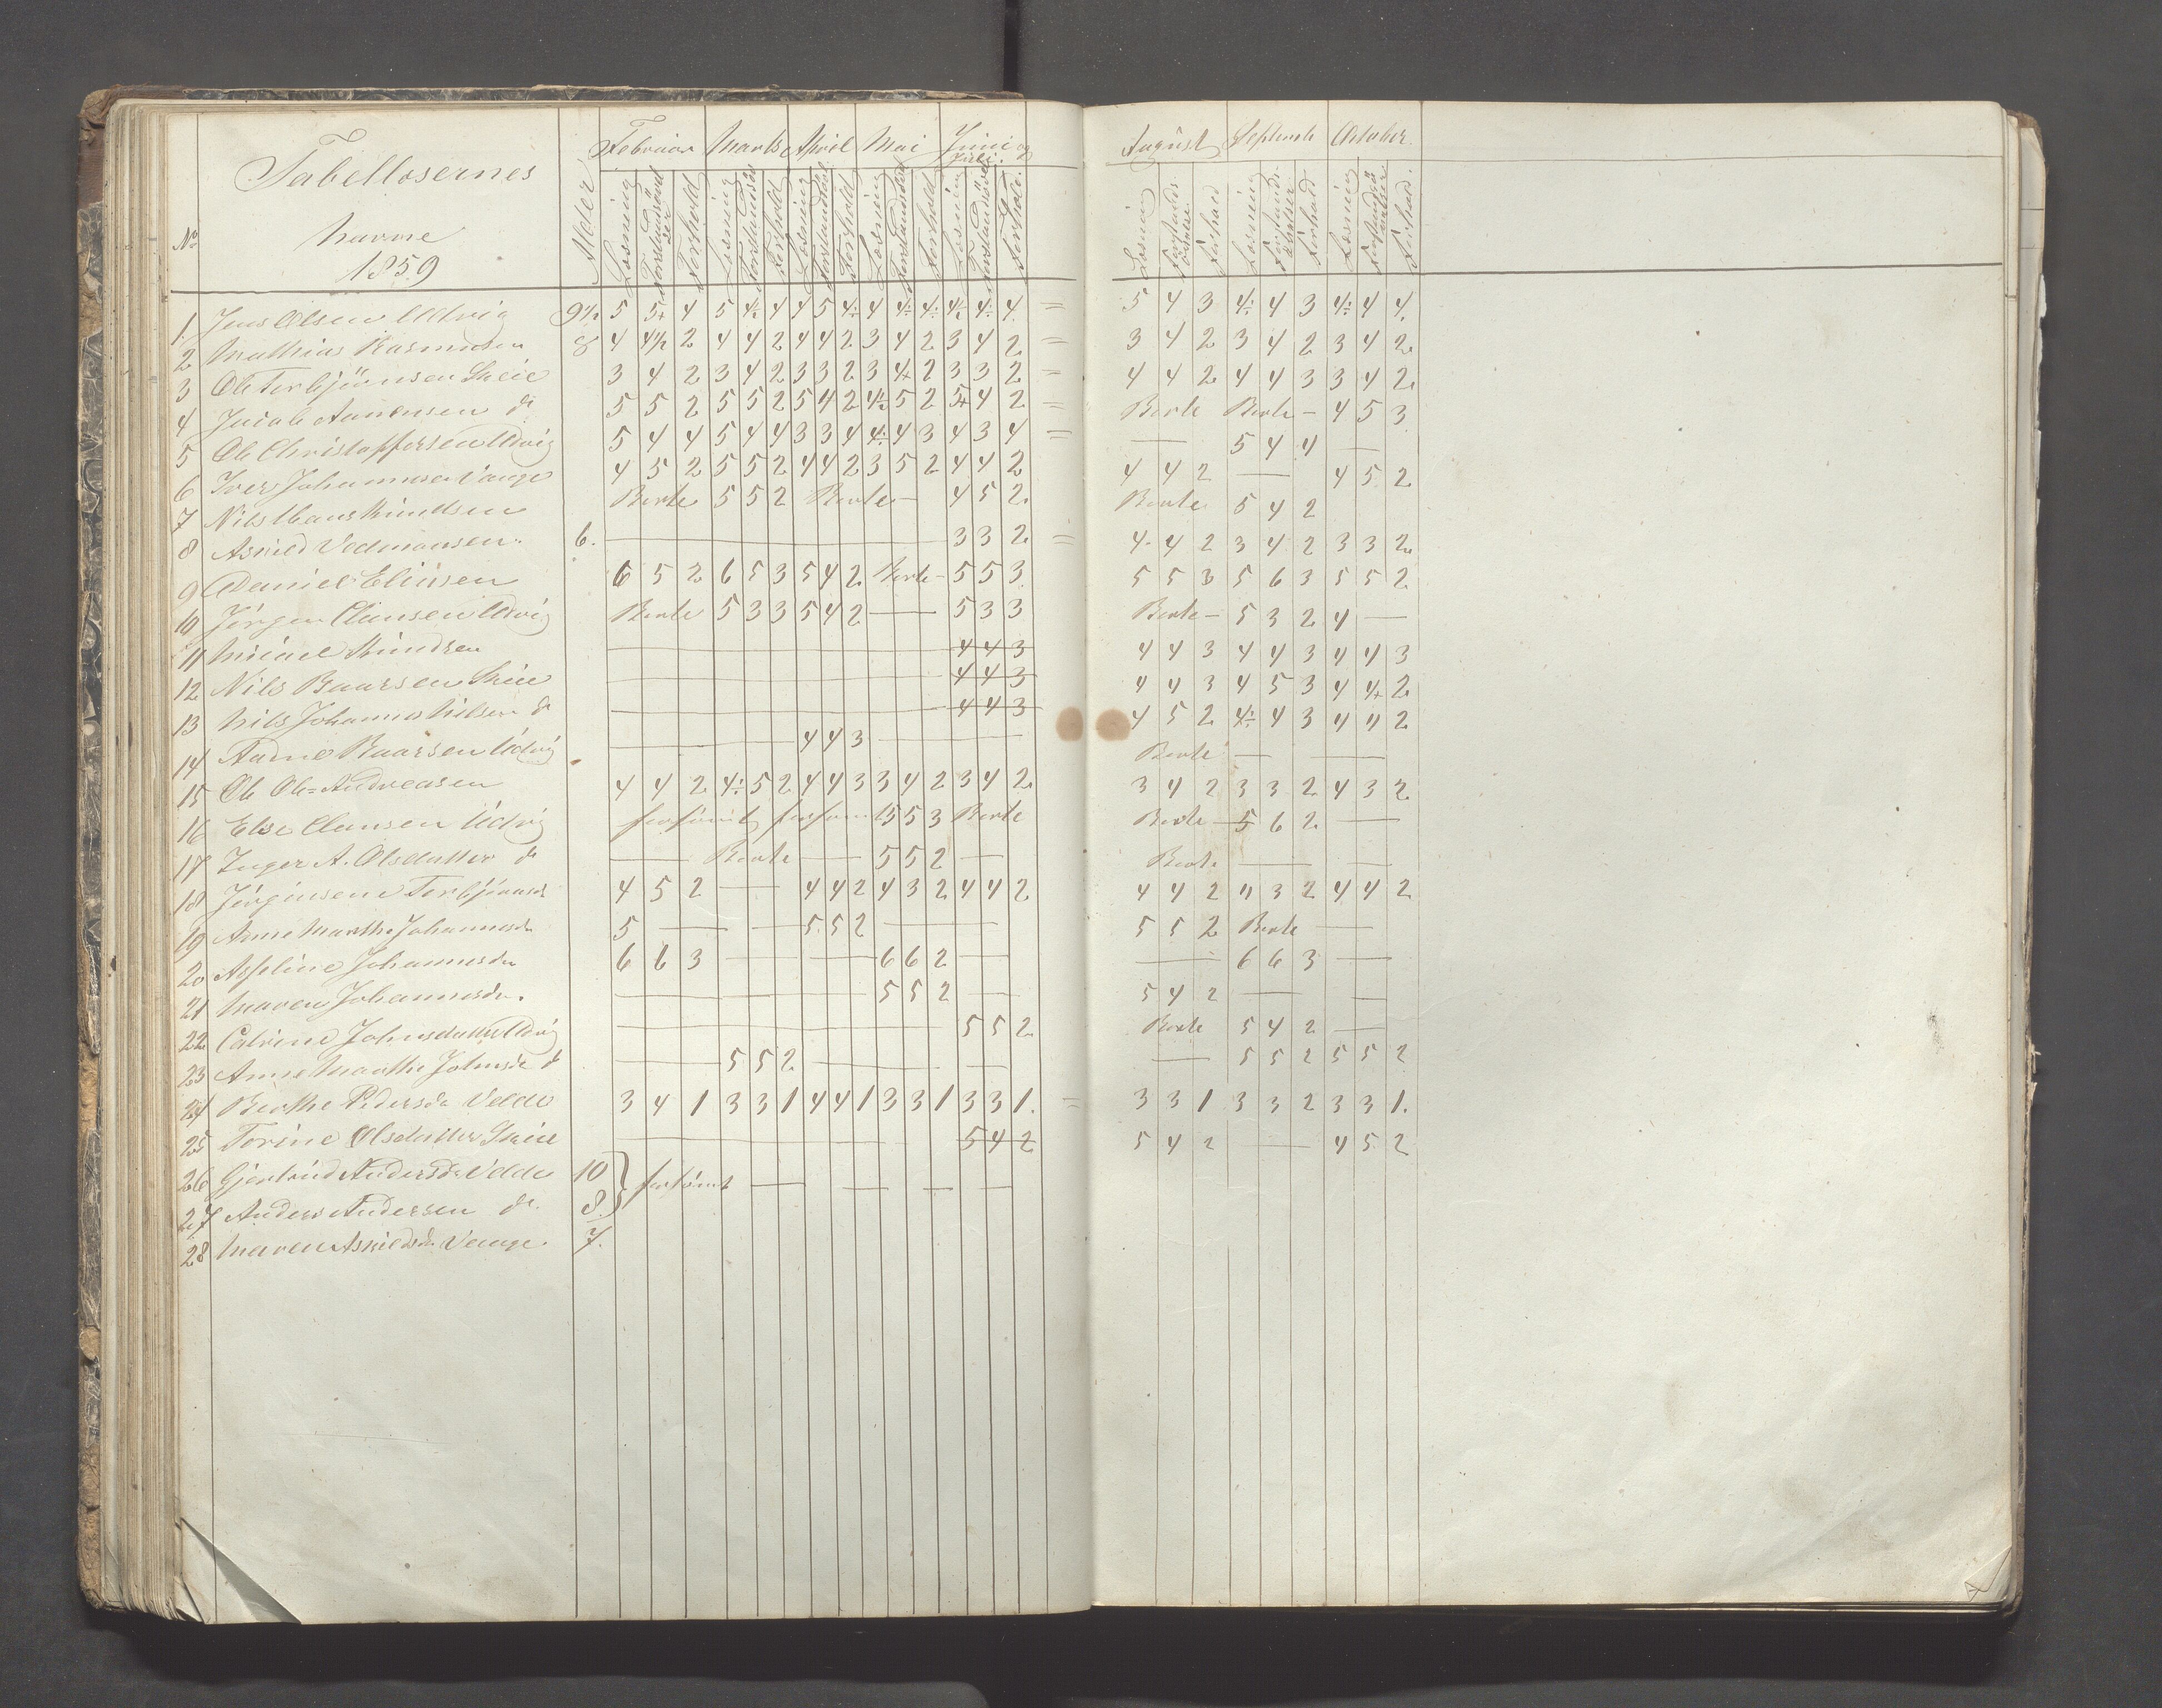 Tabellæsernes
Navne
1859
No
Alder
Februar Marts April Mai Juni og Juli
August Septemb October
Læsning Forstandsøvelser Forhold Læsning Forstandsøvelser Forhold Læsning Forstandsøvelser Forhold Læsning Forstandsøvelser Forhold Læsning Forstandsøvelser Forhold
Læsning Forstandsøvelser Forhold Læsning Forstandsøvelser Forhold Læsning Forstandsøvelser Forhold
1. Jens Olsen Udvig 9½ 5 5+ 4 5 4½ 4 4 5 4÷ 4 4÷ 4÷ 4½ 4÷ 4 = 5 4 3 4÷ 4 3 4÷ 4 4
2 Mathias Rasmussen 8 4 4½ 2 4 4 2 4 4 2 3 4 2 3 4 2 = 3 4 2 3 4 2 3 4 2
3 Ole Torbjörnsen Skeie 3 4 2 3 4 2 3 3 2 3 4+ 2 3 3 2 = 4 4 2 4 4 3 3 4 2
4 do 5 5 2 5 5 2 5 4 2 4½ 5 2 5+ 4 2 = Borte Borte – 4 5 3
5 Ole Christophersen Udvig 5 4 4 5 4 4 3 3 4 4÷ 4 3 4 3 4 = — 5 4 4 —
6 Iver Johannesen Vauge 4 5 2 5 5 2 4 4 2 3 5 2 4 4 2 4 4 2 — 4 5 2
7 Nils Knudsen Borte 5 5 2 Borte – 4 5 2 Borte 5 4 2
8 Askild Vedmonsen 6. — 3 3 2 = 4 4 2 3 4 2 3 3 2
9 Daniel Eliasen 6 5 2 6 5 3 5 4 2 Borte – 5 5 3 5 5 3 5 6 3 5 5 2
10 Jörgen Clausen Udvig Borte 5 3 3 5 4 2 — 5 3 3 Borte – 5 3 2 4 —
11 Mikael Knudsen — 4 4 3 4 4 3 4 4 3 4 4 3
12 Nils Baarsen Skeie — 4 4 3 4 4 3 4 5 3 4 4+ 2
13 Nils Johannes Nilsen do — 4 4 3 4 5 2 4÷ 4 3 4 4 2
14 Baarsen Udvig — 4 4 3 — Borte — —
15 Ole Ole=Andreasen 4 4 2 4÷ 5 2 4 4 3 3 4 2 3 4 2 3 4 2 3 3 2 4 3 2
16 Else Clausen Udvig forsömt forsömt 5 5 3 Borte Borte – 5 6 2 —
17 Inger A. Olsdatter do — Borte — 5 5 2 — Borte — —
18 Jörginsene Torbjörnsd 4 5 2 — 4 4 2 4 3 2 4 4 2 4 4 2 4 3 2 4 4 2
19 Anne Marthe Johannesd 5 — — 5 5 2 — — 5 5 2 Borte —
20 Asseline Johannesda 6 6 3 — — 6 6 2 — — 6 6 3 —
21 Maren Johannesda. — 5 5 2 — 5 4 2 — —
22 Catrine Johnsdatter Udvig — 5 5 2 Borte 5 4 2 —
23 Anne Marthe Johnsda do — 5 5 2 — — — 5 5 2 5 5 2
24 Berthe Pedersda Velde 3 4 1 3 3 1 4 4 1 3 3 1 3 3 1. = 3 3 1 3 3 2 3 3 1.
25 Torine Olsdatter Skeie — 5 4 2 5 4 2 — 4 5 2
26 Gjertrud Andersda Velde 10 } forsömt — — — —
27 Anders Andersen do. 8.
28 Maren Askildsda Vauge. 7.